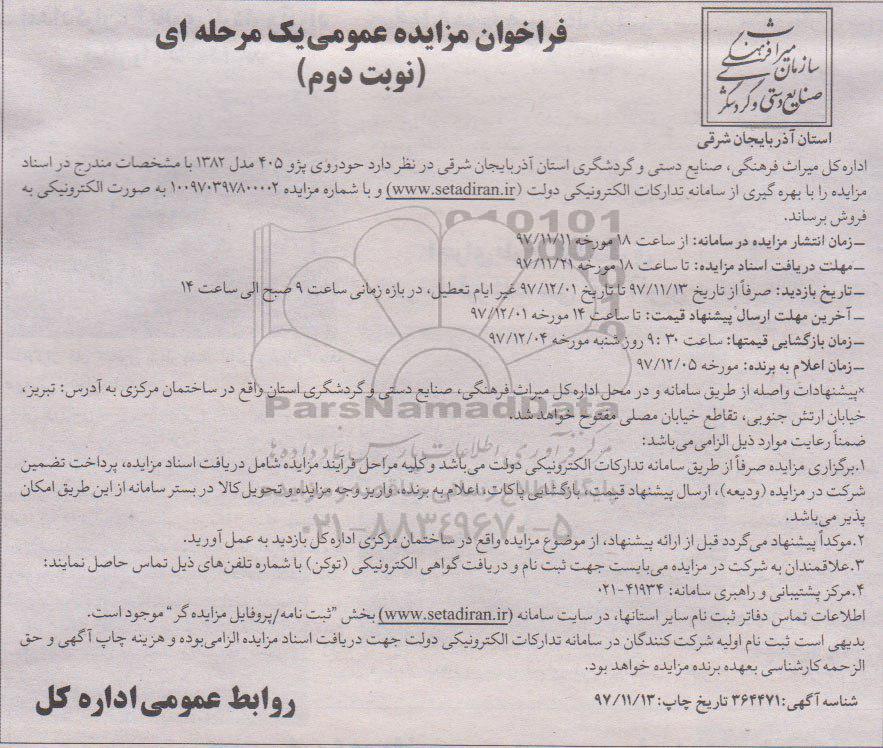 فراخوان مزایده عمومی یک مرحله ای
(نوبت دوم)
سازمان میراث فرهنگی
صنایع دستی و گردشگری
استان آذربایجان شرقی
اداره کل میراث فرهنگی، صنایع دستی و گردشگری استان آذربایجان شرقی در نظر دارد خودروی پژو ۴۰۵ مدل ۱۳۸۲ با مشخصات مندرج در اسناد
مزایده را با بهره گیری از سامانه تدارکات الکترونیکی دولت (www.setadiran.ir) و با شماره مزایده ۱۰۰۹۷۰۳۹۷۸۰۰۰۰۲ به صورت الکترونیکی به
فروش برساند.
ـ زمان انتشار مزایده در سامانه: از ساعت ۱۸ مورخه ۹۷/۱۱/۱۱
ـ مهلت دریافت اسناد مزایده: تا ساعت ۱۸ مورخه ۹۷/۱۱/۲۱
ـ تاریخ بازدید: صرفاً از تاریخ ۹۷/۱۱/۱۳ تا تاریخ ۹۷/۱۲/۰۱ غیر ایام تعطیل، در بازه زمانی ساعت ۹ صبح الی ساعت ۱۴
ـ آخرین مهلت ارسال پیشنهاد قیمت: تا ساعت ۱۴ مورخه ۹۷/۱۲/۰۱
ـ زمان بازگشایی قیمتها: ساعت ۳۰ :۹ روز شنبه مورخه ۹۷/۱۲/۰۴
ـ زمان اعلام به برنده: مورخه ۹۷/۱۲/۰۵
×پیشنهادات واصله از طریق سامانه و در محل اداره کل میراث فرهنگی، صنایع دستی و گردشگری استان واقع در ساختمان مرکزی به آدرس: تبریز،
خیابان ارتش جنوبی، تقاطع خیابان مصلی مفتوح خواهد شد.
ضمناً رعایت موارد ذیل الزامی می‌باشد:
۱.برگزاری مزایده صرفاً از طریق سامانه تدارکات الکترونیکی دولت می‌باشد و کلیه مراحل فرآیند مزایده شامل دریافت اسناد مزایده، پرداخت تضمین
شرکت در مزایده (ودیعه)، ارسال پیشنهاد قیمت، بازگشایی پاکات، اعلام به برنده، واریز وجه مزایده و تحویل کالا در بستر سامانه از این طریق امکان
پذیر می‌باشد.
۲.موکداً پیشنهاد می‌گردد قبل از ارائه پیشنهاد، از موضوع مزایده واقع در ساختمان مرکزی اداره کل بازدید به عمل آورید.
۳.علاقمندان به شرکت در مزایده می‌بایست جهت ثبت نام و دریافت گواهی الکترونیکی (توکن) با شماره تلفن‌های ذیل تماس حاصل نمایند:
۴.مرکز پشتیبانی و راهبری سامانه: ۴۱۹۳۴-۰۲۱
اطلاعات تماس دفاتر ثبت نام سایر استانها، در سایت سامانه (www.setadiran.ir) بخش "ثبت نامه/پروفایل مزایده گر" موجود است.
بدیهی است ثبت نام اولیه شرکت کنندگان در سامانه تدارکات الکترونیکی دولت جهت دریافت اسناد مزایده الزامی‌بوده و هزینه چاپ آگهی و حق
الزحمه کارشناسی بعهده برنده مزایده خواهد بود.
شناسه آگهی: ۳۶۴۴۷۱ تاریخ چاپ: ۹۷/۱۱/۱۳
روابط عمومی اداره کل
ParsNamadData
مرکز فرآوری اطلاعات پارس نماد داده‌ها
۰۲۱-۸۸۳۴۹۶۷۰-۵